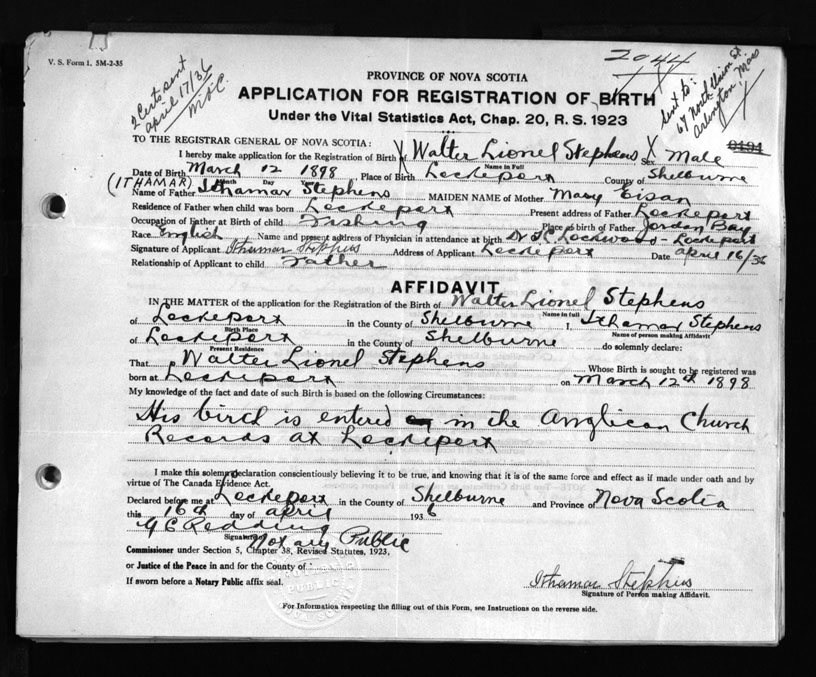 V. S. Form 1. 5M-2-35
2 Certs sent
april 17/36
2044
Sent to:
67 North Union St.
Arlington, Mass
PROVINCE OF NOVA SCOTIA
APPLICATION FOR REGISTRATION OF BIRTH
Under the Vital Statistics Act, Chap. 20, R. S. 1923
TO THE REGISTRAR GENERAL OF NOVA SCOTIA:
I hereby make application for the Registration of Birth of Walter Lionel Stephens Sex Male
Name in Full
Date of Birth March 12 1898 Place of Birth Lockeport County of Shelburne
Month Day
(ITHAMAR)
Name of Father Ithamar Stephens MAIDEN NAME of Mother Mary Eisan
Residence of Father when child was born Lockeport Present address of Father Lockeport
Occupation of Father at Birth of child Fishing Place of birth of Father Jordan Bay
Race English Name and present address of Physician in attendance at birth Dr Lockwood - Lockeport
Signature of Applicant Ithamar Stephens Address of Applicant Lockeport Date april 16/36
Relationship of Applicant to child Father
AFFIDAVIT
IN THE MATTER of the application for the Registration of the Birth of Walter Lionel Stephens
Name in full
of Lockeport in the County of Shelburne I, Ithamar Stephens
Birth Place Name of person making Affidavit
of Lockeport in the County of Shelburne do solemnly declare:
Present Residence
That Walter Lionel Stephens Whose Birth is sought to be registered was
born at Lockeport on March 12th 1898
My knowledge of the fact and date of such Birth is based on the following Circumstances:
His birth is entered in the Anglican Church
Records at Lockeport
I make this solemn declaration conscientiously believing it to be true, and knowing that it is of the same force and effect as if made under oath and by
virtue of The Canada Evidence Act.
Declared before me at Lockeport in the County of Shelburne and Province of Nova Scotia
this 16th day of april 1936
Redding
Signature of
Notary Public
Commissioner under Section 5, Chapter 38, Revised Statutes, 1923,
or Justice of the Peace in and for the County of
If sworn before a Notary Public affix seal.
Ithamar Stephens
Signature of Person making Affidavit.
For Information respecting the filling out of this Form, see Instructions on the reverse side.